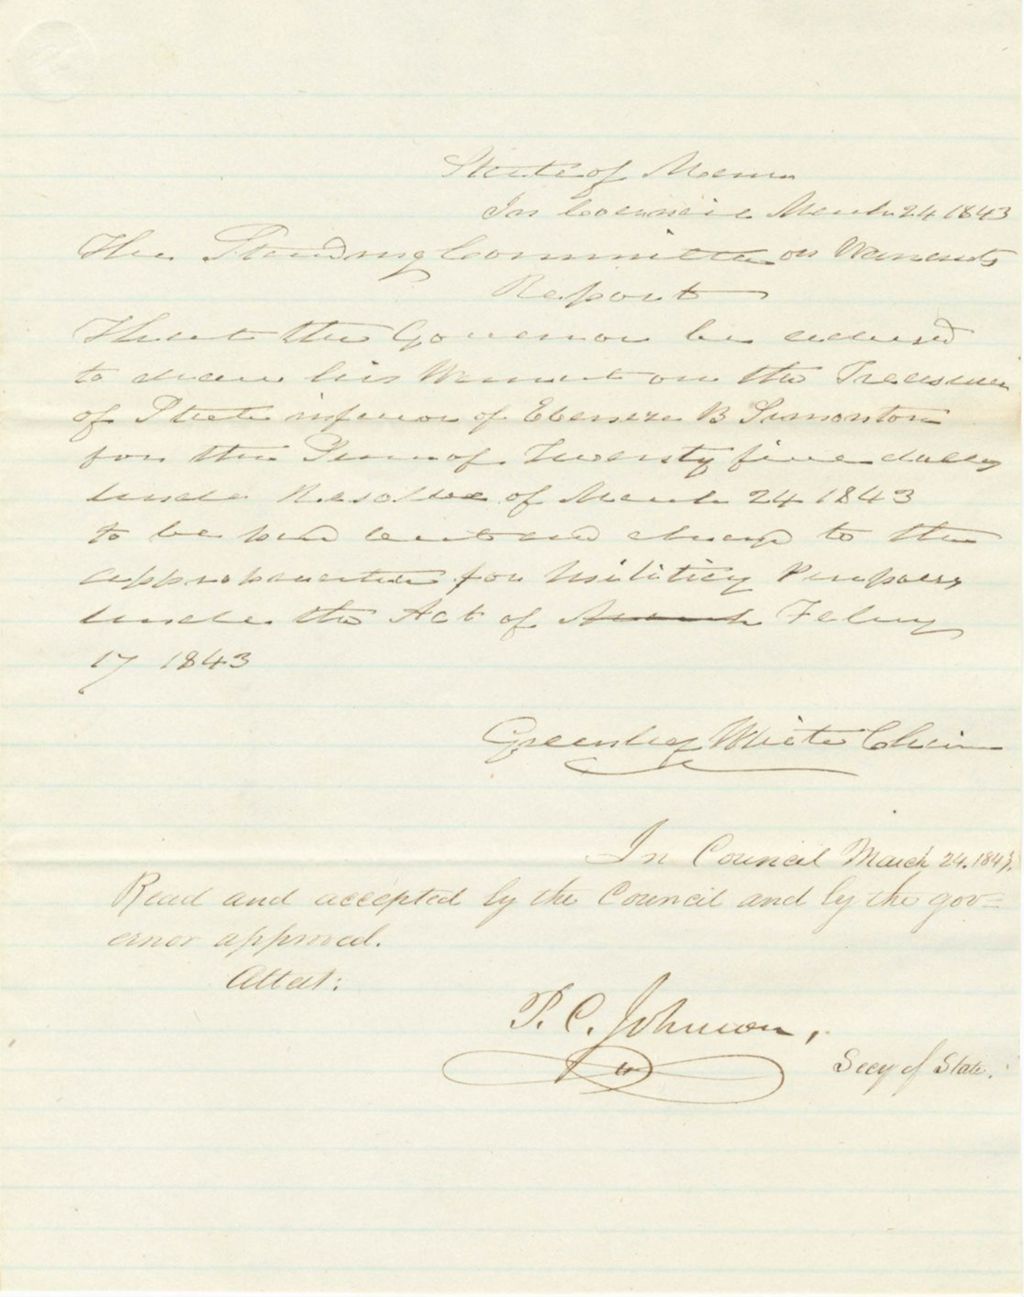 State of Maine
In Council March 24 1843
The Standing Committee on Warrants
Report
That the Governor be advised
to draw his Warrant on the Treasurer
of State in favor of Ebenezer B Simonton
for the Sum of Twenty five dollars
under Resolve of March 24 1843
to be paid out and charged to the
appropriation for Military Purposes
under the Act of March Febuy
17 1843
Greenlief White Chairm
In Council March 24. 1843.
Read and accepted by the Council and by the gov=
ernor approved.
Attest:
P. C. Johnson,
Secy of State.